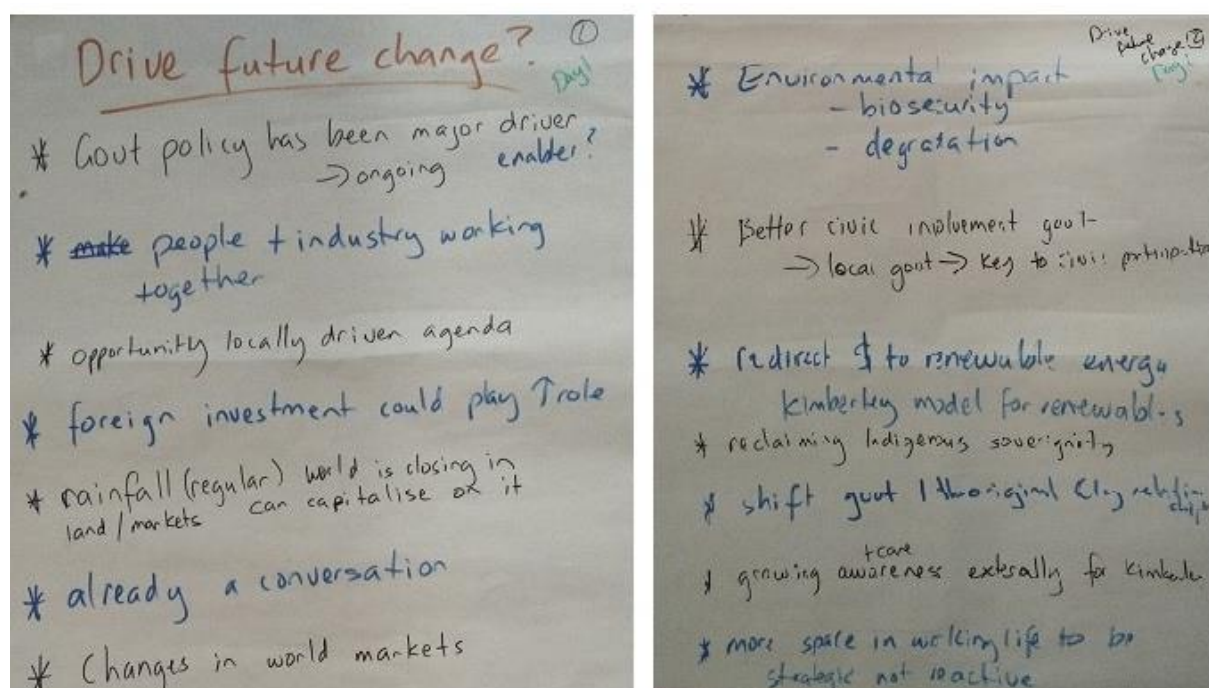 Drive future change? ①
Day 1
* Gout policy has been major driver
→ ongoing enabler?
* make people + industry working
together
* opportunity locally driven agenda
* foreign investment could play ↑ role
* rainfall (regular) world is closing in
land / markets can capitalise on it
* already a conversation
* Changes in world markets
Drive
future
change! ②
Day 1
* Environmental impact
- biosecurity
- degradation
* Better civic involvement govt-
→ local govt → key to civic participation
* redirect $ to renewable energy
Kimberley model for renewables
* reclaiming Indigenous sovereignity
* shift govt / Aboriginal
+ care
* growing awareness externally for Kimberley
* more space in working life to be
strategic not reactive